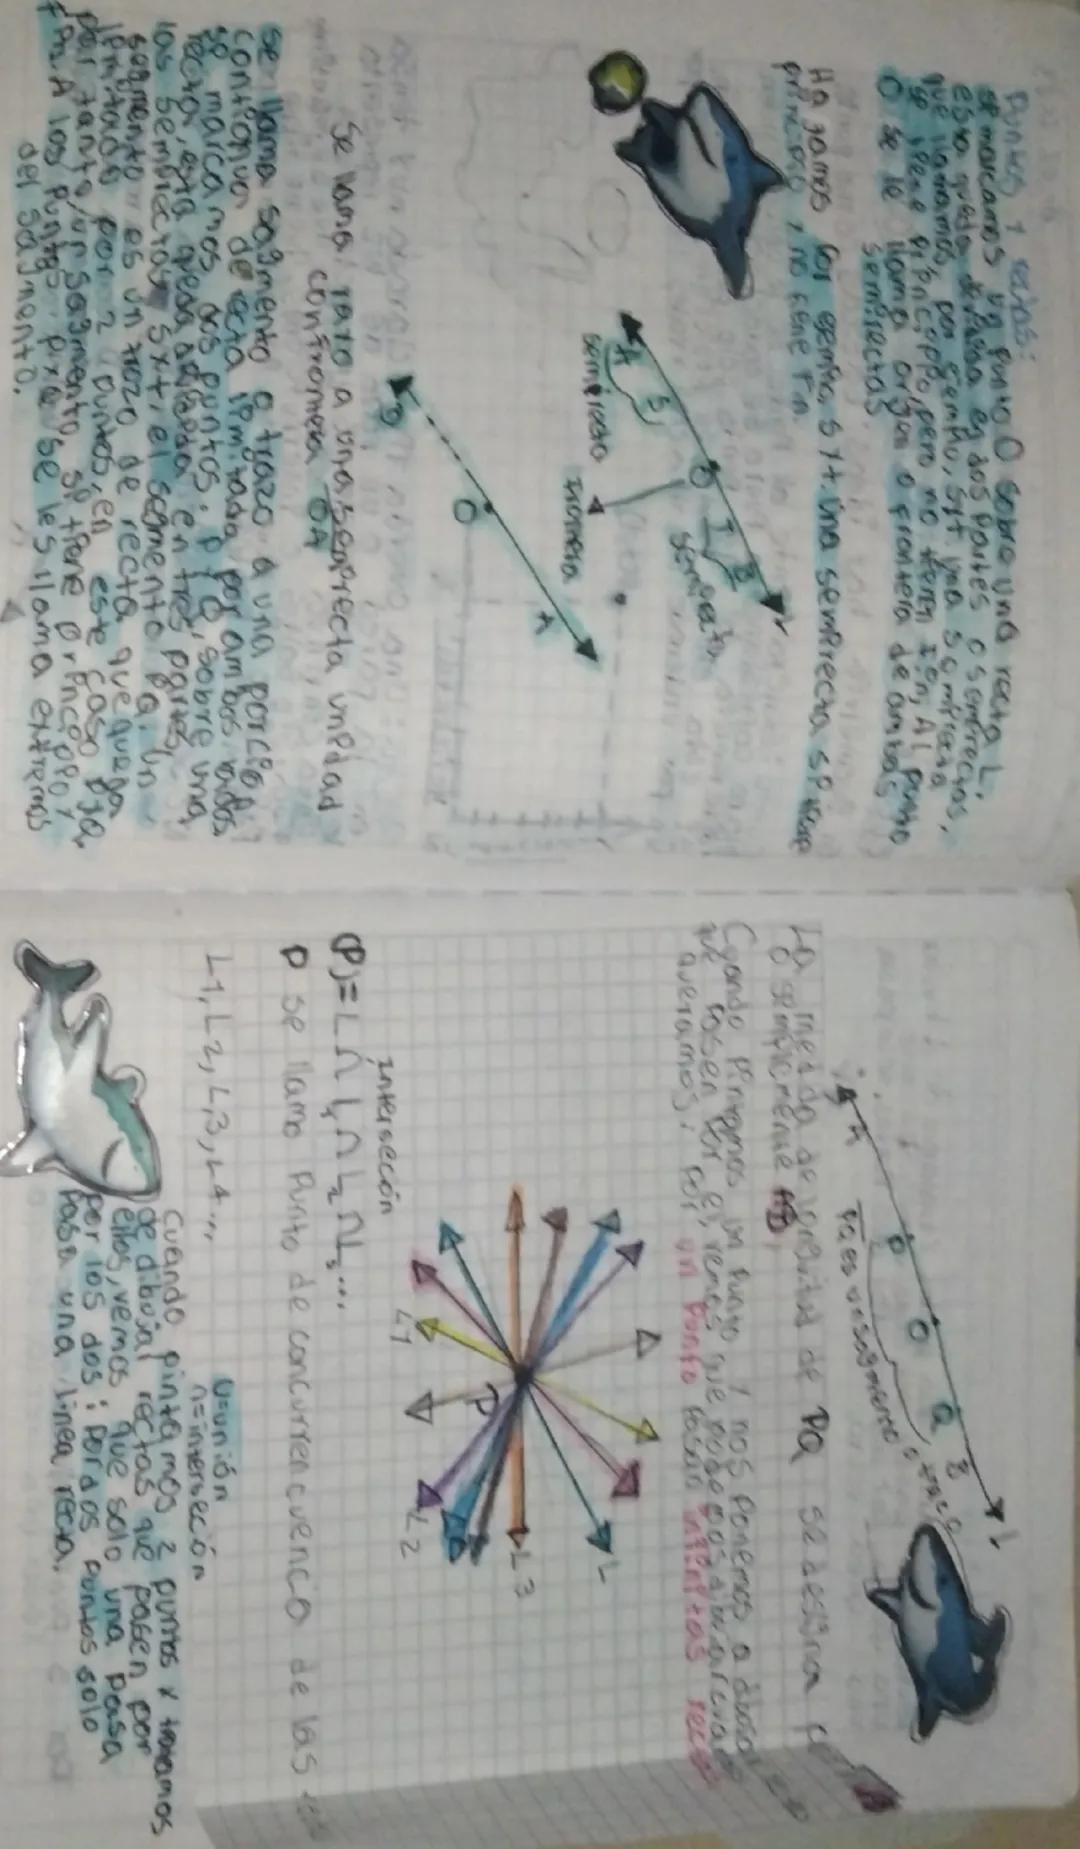 Puntos y rectas:
se marcamos un punto O sobre una recta L,
esta queda dividida en dos partes o semirectas,
que llamamos, por ejemplo, s y t una semirecta
se tiene principio, pero no tienen fin, Al punto
O se le llama origen o frontera de ambas
semirectas
Ha gamos por ejemplo, s y t una semirecta, se tiene
principio, no tiene fin
L
B
T
semirecta
O
S
A
semirecta
frontera
A
O
B
Se llama rayo a una semirecta unidad
con frontera OA
se llama segmento o trazo a una porción
continua de recta limitada por ambos lados
si marcamos dos puntos: P y Q, sobre una
recta, esta queda dividida en tres partes,
las semirectas s x t, el segmento PQ. Un
segmento es un trozo de recta que queda
limitado por 2 puntos, en este caso P y Q,
por tanto, un segmento, se tiene principio y
fin. A los puntos P y Q se les llama extremos
del segmento.
A P O Q B L
PQ es un segmento o trazo
La medida de longitud de PQ se designa
o simplemente
Cuando pintamos un punto y nos ponemos a dibujar
que pasen por el, vemos que podemos dibujar
averamos, por un punto pasan infinitas rectas
L
L3
L2
P
L1
intersección
(P)= L ∩ L1 ∩ L2 ∩ L3 ...
P se llamo Punto de concurren cuencia de las
L1, L2, L3, L4...
U=unión
n=interseción
Cuando pintamos 2 puntos x tratamos
de dibujar rectas que pasen por
ellos, vemos que solo una pasa
por los dos: Por dos puntos solo
pasa una linea recta.